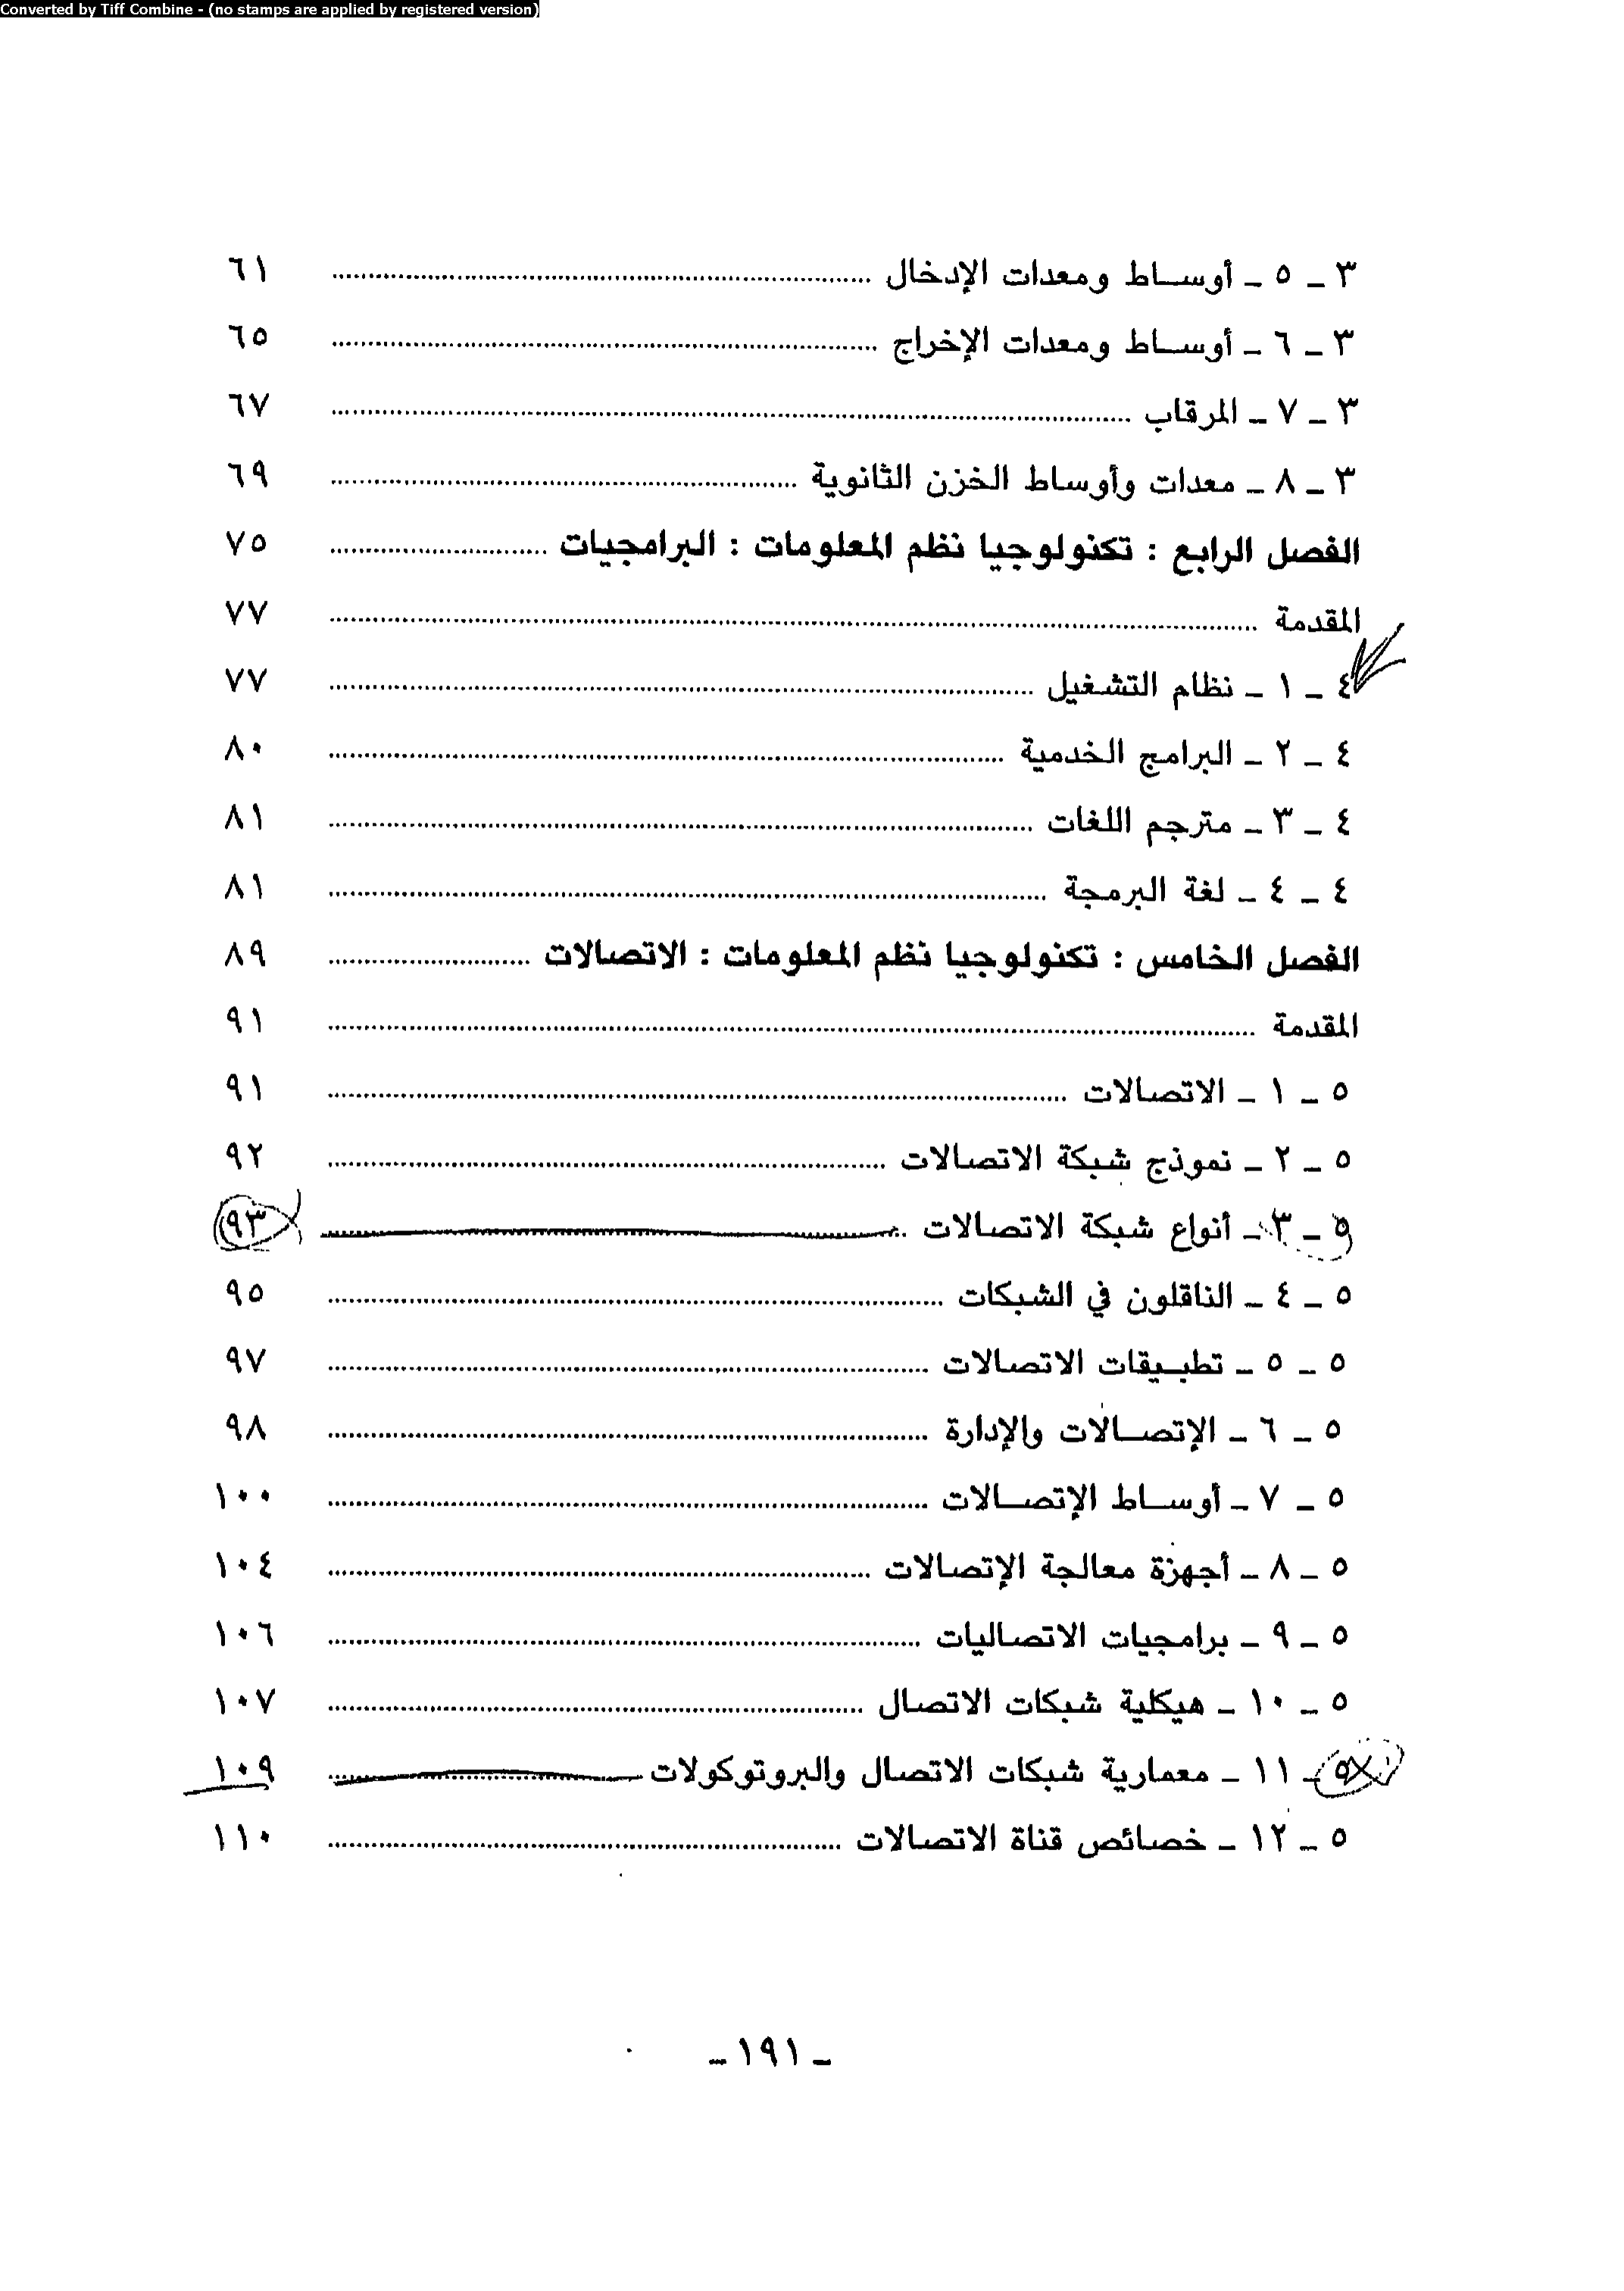 Converted by Tiff Combine - (no stamps are applied by registered version)
٣ ـ ٥ ـ أوسـاط ومعدات الإدخال ........ ٦١
٣ ـ ٦ ـ أوسـاط ومعدات الإخراج ........ ٦٥
٣ ـ ٧ ـ المرقاب ........ ٦٧
٣ ـ ٨ ـ معدات وأوساط الخزن الثانوية ........ ٦٩
الفصل الرابع : تكنولوجيا نظم المعلومات : البرامجيات ........ ٧٥
المقدمة ........ ٧٧
٤ ـ ١ ـ نظام التشغيل ........ ٧٧
٤ ـ ٢ ـ البرامج الخدمية ........ ٨٠
٤ ـ ٣ ـ مترجم اللغات ........ ٨١
٤ ـ ٤ ـ لغة البرمجة ........ ٨١
الفصل الخامس : تكنولوجيا نظم المعلومات : الاتصالات ........ ٨٩
المقدمة ........ ٩١
٥ ـ ١ ـ الاتصالات ........ ٩١
٥ ـ ٢ ـ نموذج شبكة الاتصالات ........ ٩٢
٥ ـ ٣ ـ أنواع شبكة الاتصالات ........ ٩٣
٥ ـ ٤ ـ الناقلون في الشبكات ........ ٩٥
٥ ـ ٥ ـ تطبيقات الاتصالات ........ ٩٧
٥ ـ ٦ ـ الإتصـالات والإدارة ........ ٩٨
٥ ـ ٧ ـ أوسـاط الإتصـالات ........ ١٠٠
٥ ـ ٨ ـ أجهزة معالجة الإتصالات ........ ١٠٤
٥ ـ ٩ ـ برامجيات الاتصاليات ........ ١٠٦
٥ ـ ١٠ ـ هيكلية شبكات الاتصال ........ ١٠٧
٥ ـ ١١ ـ معمارية شبكات الاتصال والبروتوكولات ........ ١٠٩
٥ ـ ١٢ ـ خصائص قناة الاتصالات ........ ١١٠
ـ ١٩١ ـ